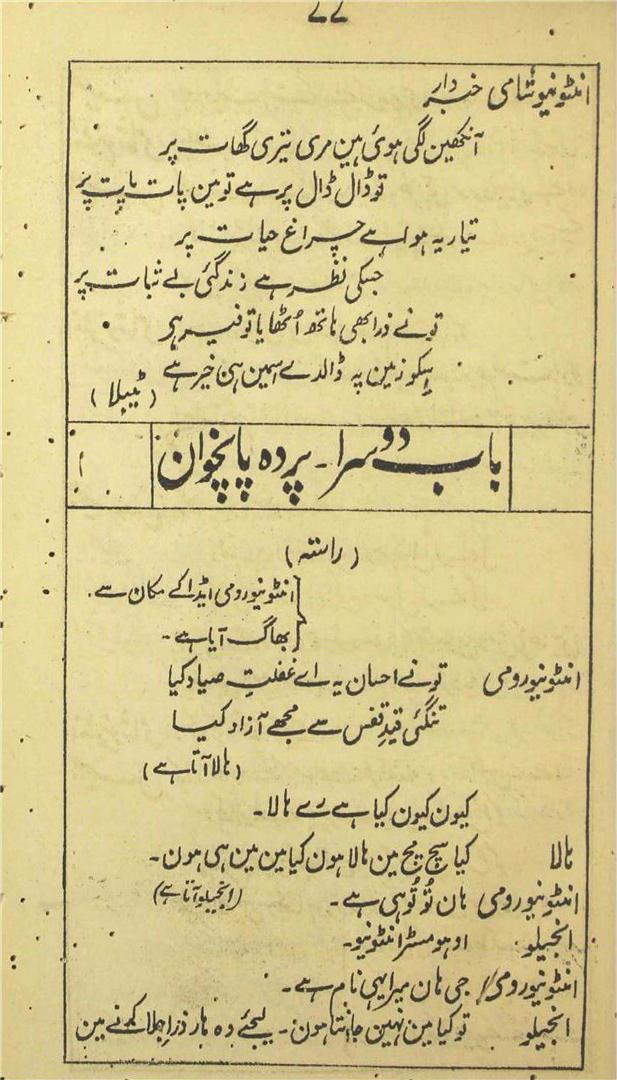 ۷۷
انٹونیو شامی خبردار
آنکھین لگی ہوئی ہین مری تیری گھات پر
تو ڈال ڈال پر ہے تو مین پات پات پر
تیار یہ ہوا ہے چراغ حیات پر
جسکی نظر ہے زندگئی بے ثبات پر
تونے ذرا بھی ہاتھ اُٹھایا تو
اِسکو زمین پہ ڈالدے اسمین ہی خیر ہے
(ٹیبلا)
باب دوسرا - پردہ پانچوان
(راستہ)
انٹونیو رومی ایڈا کے مکان سے
بھاگ آیا ہے -
انٹونیو رومی تونے احسان یہ اے غفلتِ صیاد کیا
تنگئی قیدِ قفس سے مجھے آزاد کیا
(ہالا آتا ہے)
کیون کیون کیا ہے رے ہالا -
ہالا کیا سچ مچ مین ہالا ہون کیا مین مین ہی ہون -
انٹونیو رومی ہان تُو تُو ہی ہے - (انجیلو آتا ہے)
انجیلو اوہو مسٹر انٹونیو -
انٹونیو رومی جی ہان میرا یہی نام ہے -
انجیلو تو کیا مین نہین جانتا ہون - لیجئے وہ ہار ذرا جلا کرنے مین